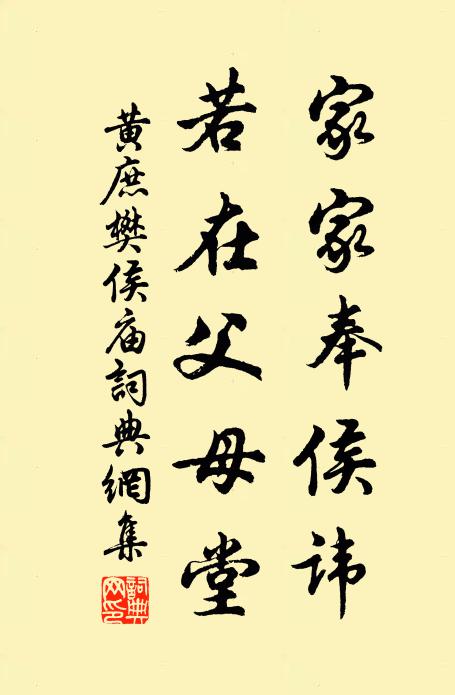 家家奉侯諱
若在父母堂
黃庶樊侯庙詞典網集
詞典网印